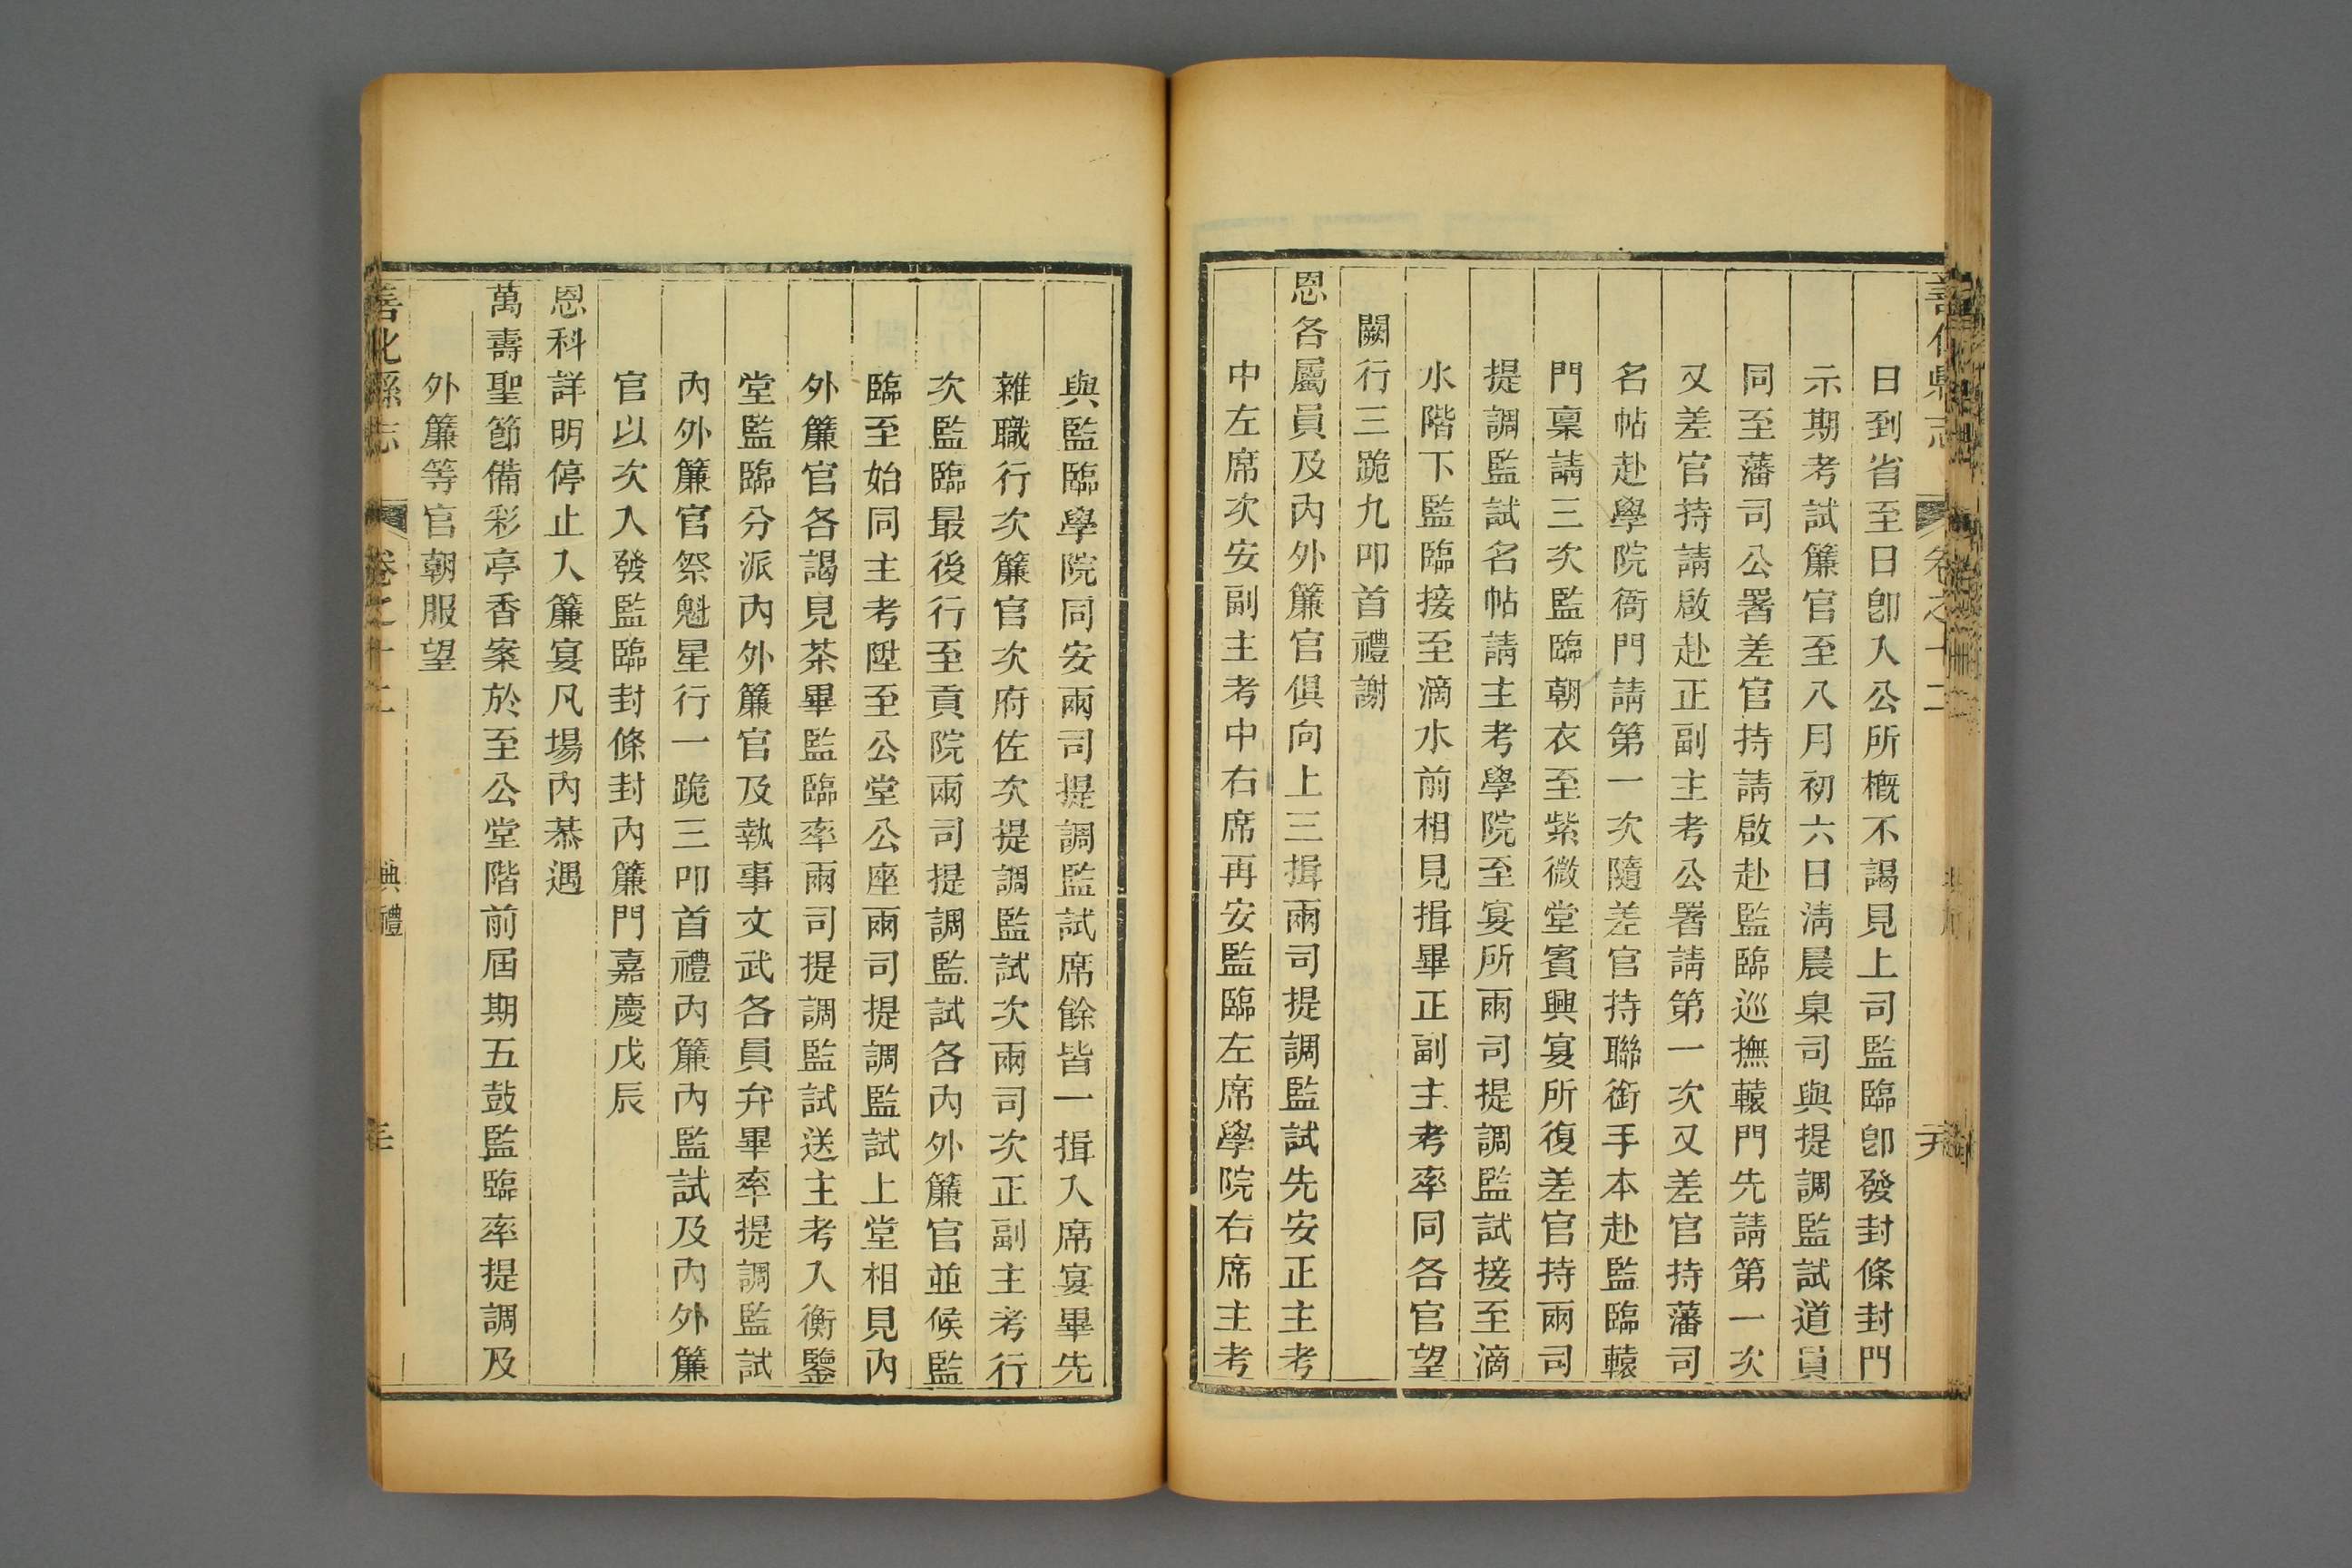 善化縣志
卷之十二
日到省至日卽入公所概不謁見上司監臨卽發封條封門
示期考試簾官至八月初六日淸晨臬司與提調監試道員
同至藩司公署差官持請啟赴監臨巡撫轅門先請第一次
又差官持請啟赴正副主考公署請第一次又差官持藩司
名帖赴學院衙門請第一次隨差官持聯銜手本赴監臨轅
門稟請三次監臨朝衣至紫微堂賓興宴所復差官持兩司
提調監試名帖請主考學院至宴所兩司提調監試接至滴
水階下監臨接至滴水前相見揖畢正副主考率同各官望
闕行三跪九叩首禮謝
恩各屬員及內外簾官俱向上三揖兩司提調監試先安正主考
中左席次安副主考中右席再安監臨左席學院右席主考
與監臨學院同安兩司提調監試席餘皆一揖入席宴畢先
雜職行次簾官次府佐次提調監試次兩司次正副主考行
次監臨最後行至貢院兩司提調監試各內外簾官並候監
臨至始同主考陞至公堂公座兩司提調監試上堂相見內
外簾官各謁見茶畢監臨率兩司提調監試送主考入衡鑒
堂監臨分派內外簾官及執事文武各員弁畢率提調監試
內外簾官祭魁星行一跪三叩首禮內簾內監試及內外簾
官以次入發監臨封條封內簾門嘉慶戊辰
恩科詳明停止入簾宴凡場內恭遇
萬壽聖節備彩亭香案於至公堂階前屆期五鼓監臨率提調及
外簾等官朝服望
善化縣志
卷之十二
典禮